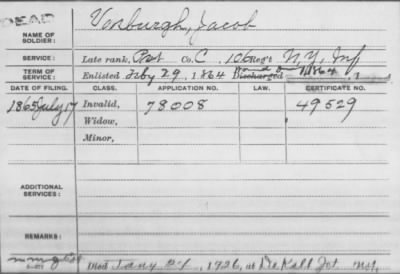 DEAD
NAME OF SOLDIER: Vosburgh, Jacob
SERVICE: Late rank, Pvt Co. C, 106 Reg't N.Y. Inf
TERM OF SERVICE: Enlisted Feby 29, 1864 Discharged 1864, 1
DATE OF FILING. CLASS. APPLICATION NO. LAW. CERTIFICATE NO.
1865 July 17 Invalid, 78008 49529
Widow,
Minor,
ADDITIONAL SERVICES:
REMARKS:
Died Jany 1926, at De Kalb Jct N.Y.